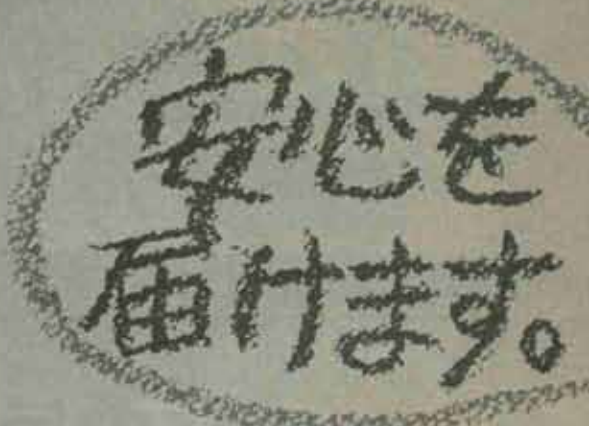 安心を
届けます。